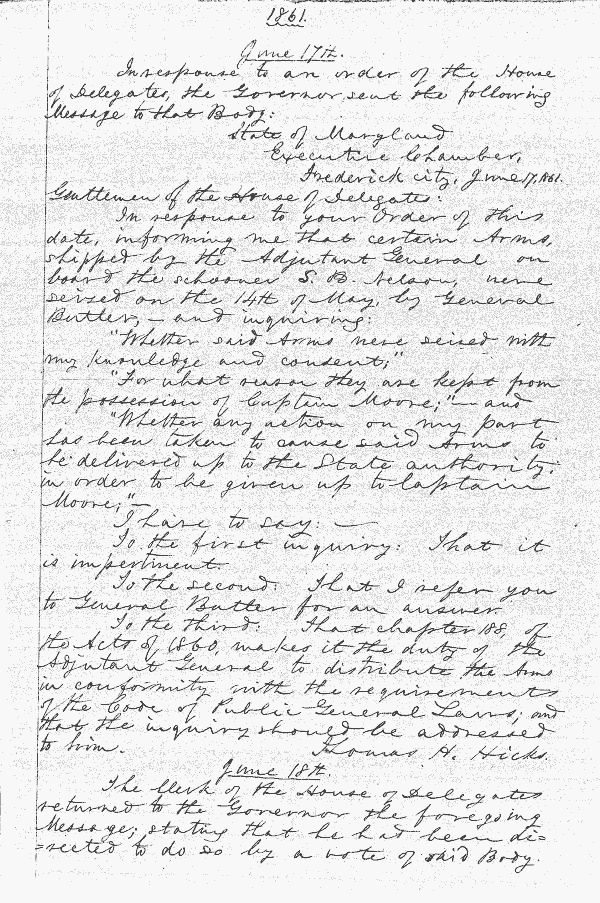 1861.
June 17th.
In response to an order of the House
of Delegates, the Governor sent the following
Message to that Body:
State of Maryland
Executive Chamber,
Frederick city, June 17, 1861.
Gentlemen of the House of Delegates:
In response to your Order of this
date, informing me that certain Arms,
shipped by the Adjutant General on
board the schooner S. B. Nelson, were
seized on the 14th of May, by General
Butler, — and inquiring:
"Whether said Arms were seized with
my knowledge and consent;"
"For what reason they are kept from
the possession of Captain Moore;" — and
"Whether any action on my part
has been taken to cause said Arms to
be delivered up to the State authority,
in order to be given up to Captain
Moore;" —
I have to say: —
To the first inquiry: That it
is impertinent.
To the second: That I refer you
to General Butler for an answer.
To the third: That chapter 188, of
the Acts of 1860, makes it the duty of the
Adjutant General to distribute the Arms
in conformity with the requirements
of the Code of Public General Laws; and
that the inquiry should be addressed
to him. Thomas H. Hicks.
June 18th.
The Clerk of the House of Delegates
returned to the Governor the foregoing
Message; stating that he had been di=
=rected to do so by a vote of said Body.